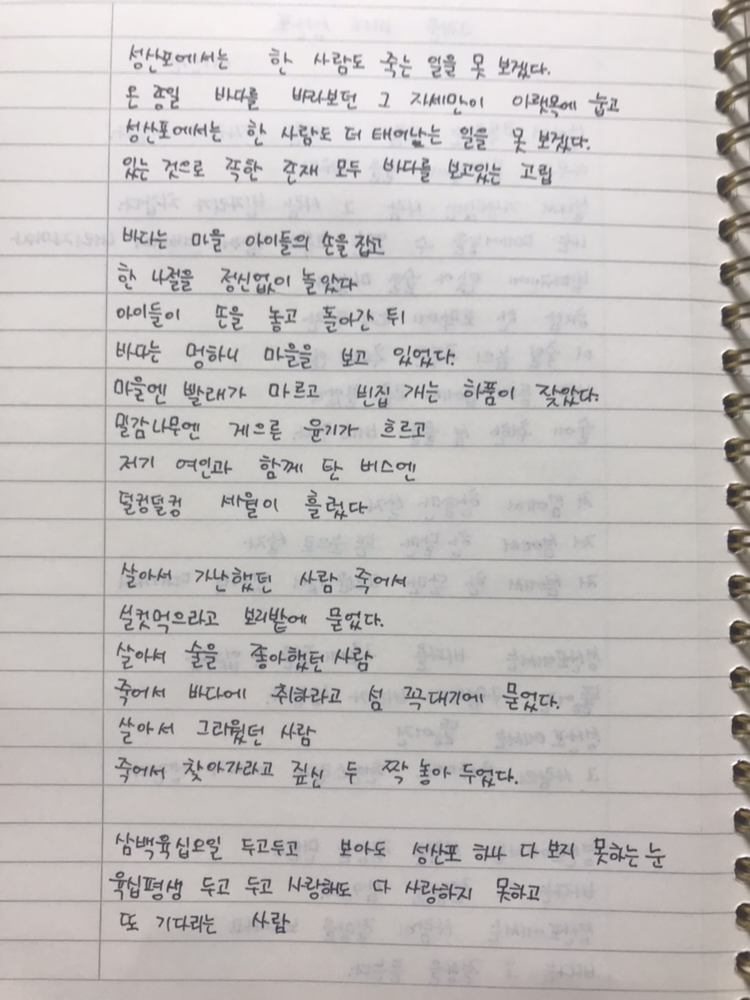 성산포에서는 한 사람도 죽는 일을 못 보겠다.
온 종일 바다를 바라보던 그 자세만이 아랫목에 눕고
성산포에서는 한 사람도 더 태어나는 일을 못 보겠다.
있는 것으로 족한 존재 모두 바다를 보고있는 고립
바다는 마을 아이들의 손을 잡고
한 나절을 정신없이 놀았다
아이들이 손을 놓고 돌아간 뒤
바다는 멍하니 마을을 보고 있었다.
마을엔 빨래가 마르고 빈집 개는 하품이 잦았다.
밀감나무엔 게으른 윤기가 흐르고
저기 여인과 함께 탄 버스엔
덜컹덜컹 세월이 흘렀다.
살아서 가난했던 사람 죽어서
실컷먹으라고 보리밭에 묻었다.
살아서 술을 좋아했던 사람
죽어서 바다에 취하라고 섬 꼭대기에 묻었다.
살아서 그리웠던 사람
죽어서 찾아가라고 짚신 두 짝 놓아 두었다.
삼백육십오일 두고두고 보아도 성산포 하나 다 보지 못하는 눈
육십평생 두고 두고 사랑해도 다 사랑하지 못하고
또 기다리는 사람